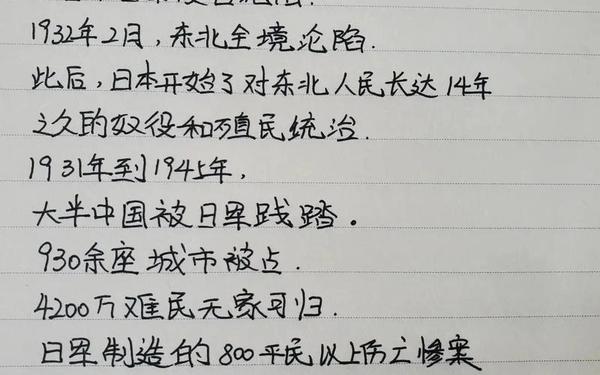 1932年2月,东北全境沦陷.
此后,日本开始了对东北人民长达14年
之久的奴役和殖民统治.
1931年到1945年,
大半中国被日军践踏。
930余座城市被占.
4200万难民无家可归.
日军制造的800平民以上伤亡惨案